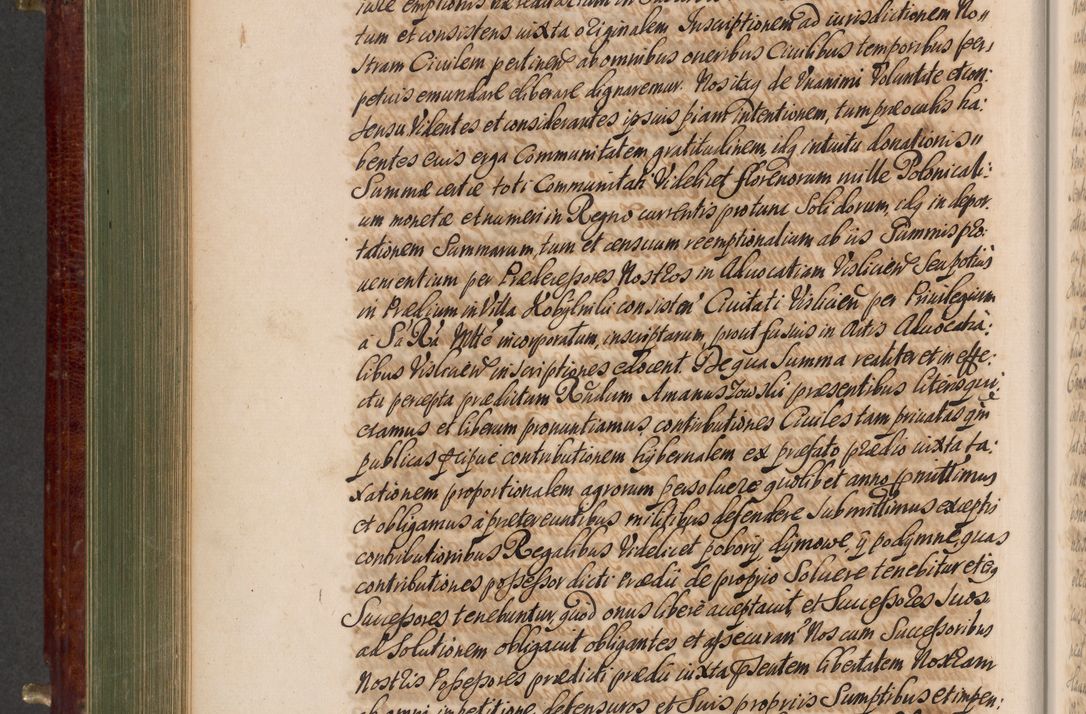 tum et consistens iuxta originalem Inscriptionem ad iurisdictionem No„
stram Civilem pertinen̄ ab omnibus oneribus Civilibus temporibus per„
petuis emundare eliberare dignaremur. Nos itaq̨ de Unanimi Voluntate et con:
sensu Videntes et considerantes ipsius piam intentionem, tum præ oculis ha:
bentes eius erga Communitatem gratitudinem, idq̨ intuitu donationis„
Summæ certæ toti Communitati Videlicet florenorum mille Polonicali:
um monetæ et numeri in Regno currentis pro tunc Solidorum, idq̨ in depor:
tationem Summarum, tum et censuum reemptionalium ab iis Summis pro:
venientium per Prædecessores Nostros in Advocatiam Vislicien̄ Seu potius
in Prædium in Villa Kobylniki consisten̄ Civitati Vislicien̄ per Privilegium
a Sa Ra Mtte incorporatum, inscriptarum, prout fusius in Actis Advocatia:
libus Vislicien̄ inscriptiones edocent. De qua Summa realiter et in effe:
ctu percepta prædictum Rndum Amanuszowski præsentibus literis qui:
etamus et liberum pronuntiamus, contributiones Civiles tam privatas quā
publicas p̄cipue contributionem hybernalem ex præfato prædio iuxta ta:
xationem proportionalem agrorum persolvere quolibet anno p̄mittimus
et obligamus a prætereuntibus militibus defendere submittimus exceptis
contributionibus Regalibus Videlicet pobory, dymowe, y podymne, quas
contributiones possessor dicti Prædii de proprio Solvere tenebitur et eiq̨
Successores tenebuntur, quod onus libere acceptavit et Successores suos
ad Solutionem obligavit obligantes et assecuran̄ Nos cum Successoribus
Nostris Possessores prædicti prædii iuxta p̄sentem libertatem Nostram
ab omni impetitione defensuros et Suis propriis Sumptibus et impen: